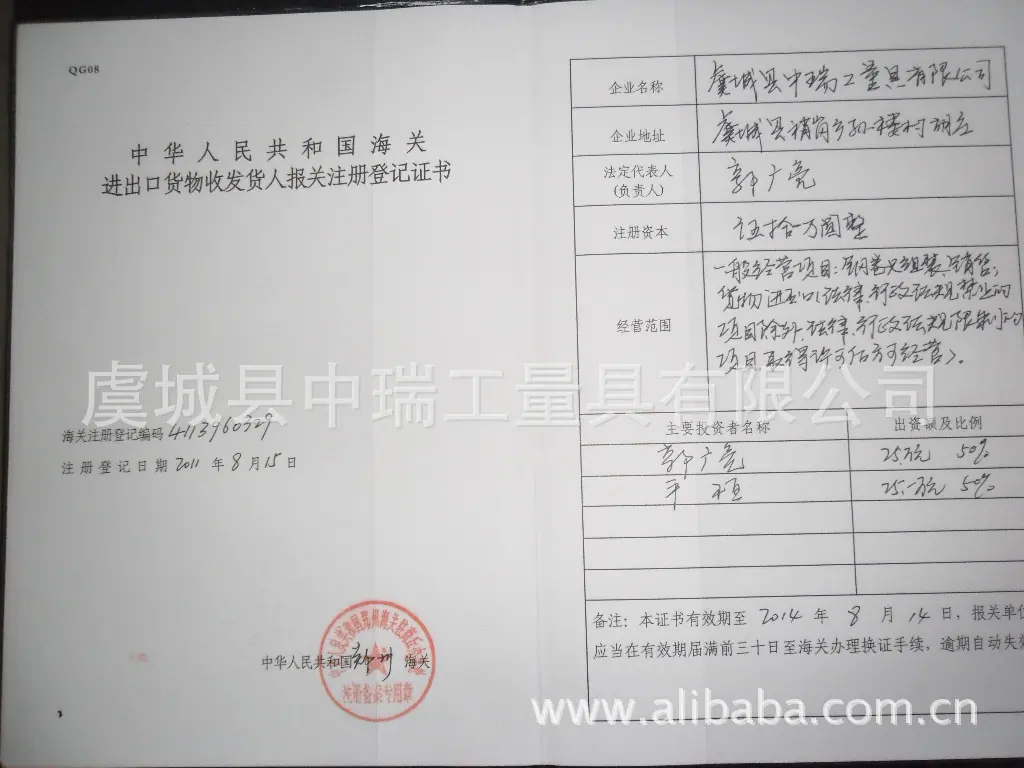 QG08
中华人民共和国海关
进出口货物收发货人报关注册登记证书
海关注册登记编码 4113960329
注册登记日期 2011 年 8 月 15 日
中华人民共和国郑州海关
注册备案专用章
企业名称 虞城县中瑞工量具有限公司
企业地址 虞城县稍岗乡孙楼村
法定代表人
(负责人)
郭广亮
注册资本 伍拾万圆整
经营范围
一般经营项目:钢卷尺组装、销售;
货物进出口(法律、行政法规禁止的
项目除外,法律、行政法规限制的
项目取得许可后方可经营)。
主要投资者名称 出资额及比例
郭广亮 25万元 50%
25万元 50%
备注:本证书有效期至 2014 年 8 月 14 日,报关单位
应当在有效期届满前三十日至海关办理换证手续,逾期自动失效
虞城县中瑞工量具有限公司
www.alibaba.com.cn